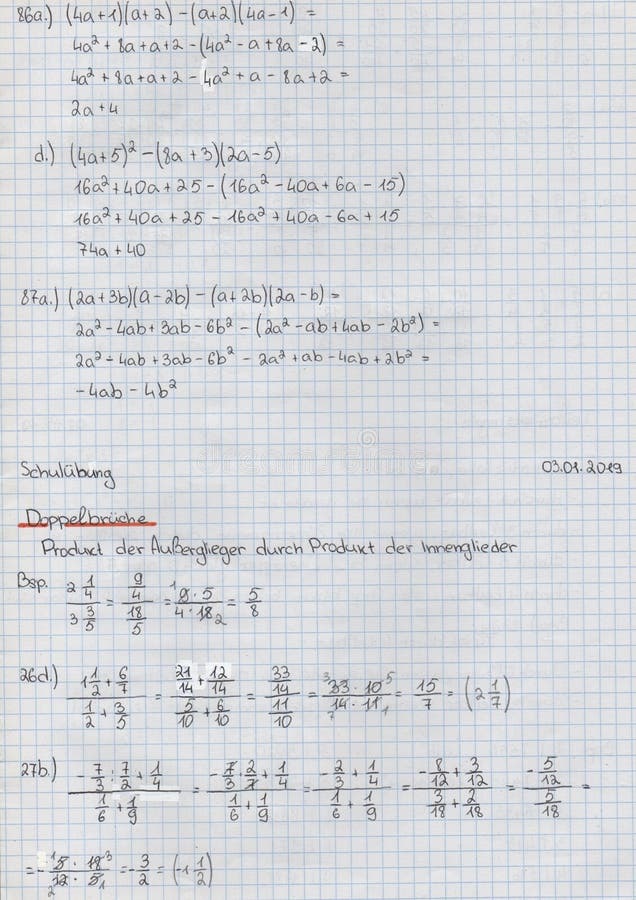 86a.) (4a+1)(a+2) - (a+2)(4a-1) =
4a² + 8a + a + 2 - (4a² - a + 8a - 2) =
4a² + 8a + a + 2 - 4a² + a - 8a + 2 =
2a + 4
d.) (4a+5)² - (8a+3)(2a-5)
16a² + 40a + 25 - (16a² - 40a + 6a - 15)
16a² + 40a + 25 - 16a² + 40a - 6a + 15
74a + 40
87a.) (2a+3b)(a-2b) - (a+2b)(2a-b) =
2a² - 4ab + 3ab - 6b² - (2a² - ab + 4ab - 2b²) =
2a² - 4ab + 3ab - 6b² - 2a² + ab - 4ab + 2b² =
-4ab - 4b²
dreamstime
Schulübung 03.01.2019
Doppelbrüche
Produkt der Außerglieger durch Produkt der Innenglieder
Bsp. (2 1/4)/(3 3/5) = (9/4)/(18/5) = (¹9 · 5)/(4 · 18₂) = 5/8
26d.) (1 1/2 + 6/7)/(1/2 + 3/5) = (21/14 + 12/14)/(5/10 + 6/10) = (33/14)/(11/10) = (³33 · 10⁵)/(₇14 · 11₁) = 15/7 = (2 1/7)
27b.) (-7/3 : 7/2 + 1/4)/(1/6 + 1/9) = (-7/3 · 2/7 + 1/4)/(1/6 + 1/9) = (-2/3 + 1/4)/(1/6 + 1/9) = (-8/12 + 3/12)/(3/18 + 2/18) = (-5/12)/(5/18) =
= -(¹5 · 18³)/(₂12 · 5₁) = -3/2 = (-1 1/2)